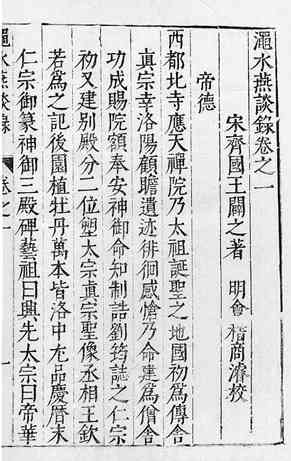 澠水燕談錄卷之一
宋齊國王闢之著　明會稽商濬校
帝德
西都北寺應天禪院乃太祖誕聖之地國初爲傳舍
眞宗幸洛陽顧瞻遺迹徘徊感愴乃命建爲僧舍
功成賜院額奉安神御命知制誥劉筠誌之仁宗
初又建別殿分二位塑太宗眞宗聖像丞相王欽
若爲之記後園植牡丹萬本皆洛中尤品慶曆末
仁宗御篆神御三殿碑藝祖曰興先太宗曰帝華
澠水燕談錄　卷之一　一